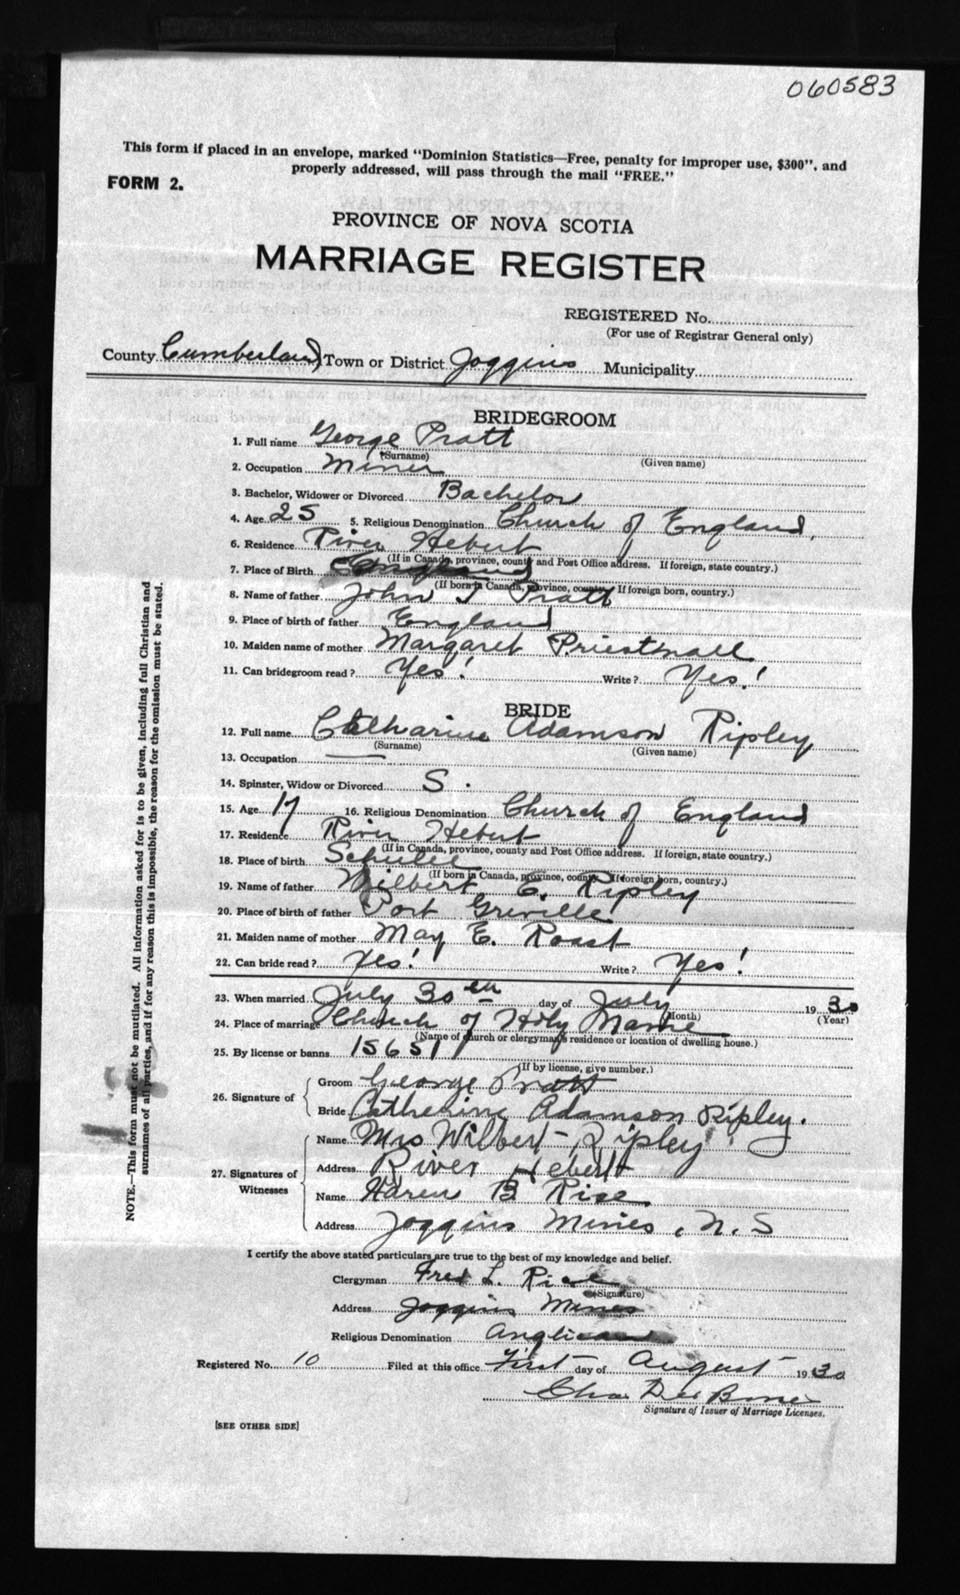 060583
This form if placed in an envelope, marked "Dominion Statistics—Free, penalty for improper use, $300", and
properly addressed, will pass through the mail "FREE."
FORM 2.
PROVINCE OF NOVA SCOTIA
MARRIAGE REGISTER
REGISTERED No.
(For use of Registrar General only)
County Cumberland Town or District Joggins Municipality
BRIDEGROOM
1. Full name George Pratt
(Surname) (Given name)
2. Occupation Miner
3. Bachelor, Widower or Divorced Bachelor
4. Age 25 5. Religious Denomination Church of England,
6. Residence River Hebert
(If in Canada, province, county and Post Office address. If foreign, state country.)
7. Place of Birth England
(If born in Canada, province, county. If foreign born, country.)
8. Name of father John T Pratt
9. Place of birth of father England
10. Maiden name of mother Margaret Priestnall
11. Can bridegroom read? Yes! Write? Yes!
BRIDE
12. Full name Catharine Adamson Ripley
(Surname) (Given name)
13. Occupation —
14. Spinster, Widow or Divorced S.
15. Age 17 16. Religious Denomination Church of England
17. Residence River Hebert
(If in Canada, province, county and Post Office address. If foreign, state country.)
18. Place of birth Schulee
(If born in Canada, province, county. If foreign born, country.)
19. Name of father Wilbert E. Ripley
20. Place of birth of father Port Greville
21. Maiden name of mother May E. Roast
22. Can bride read? Yes! Write? Yes!
23. When married July 30th day of July 1930
(Month) (Year)
24. Place of marriage Church of Holy Name
(Name of church or clergyman's residence or location of dwelling house.)
25. By license or banns 15651
(If by license, give number.)
26. Signature of
Groom George Pratt
Bride Catherine Adamson Ripley.
27. Signatures of
Witnesses
Name Mrs Wilbert Ripley
Address River Hebert
Name B Rice
Address Joggins Mines, N.S
I certify the above stated particulars are true to the best of my knowledge and belief.
Clergyman Fred L. Rice
(Signature)
Address Joggins Mines
Religious Denomination Anglican
Registered No. 10 Filed at this office First day of August 1930
Signature of Issuer of Marriage Licenses.
[SEE OTHER SIDE]
NOTE.—This form must not be mutilated. All information asked for is to be given, including full Christian and
surnames of all parties, and if for any reason this is impossible, the reason for the omission must be stated.